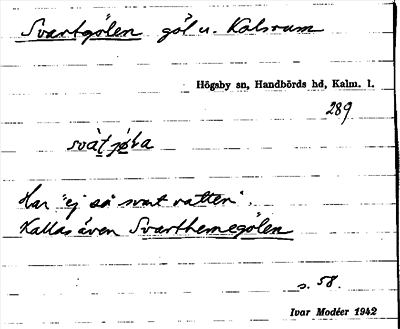 Svartgölen göl u. Kalsrum
Högsby sn, Handbörds hd, Kalm. l.
289
svàt jó̱la
Har "ej så svart vatten".
Kallas även Svarthemegölen
s. 58.
Ivar Modéer 1942